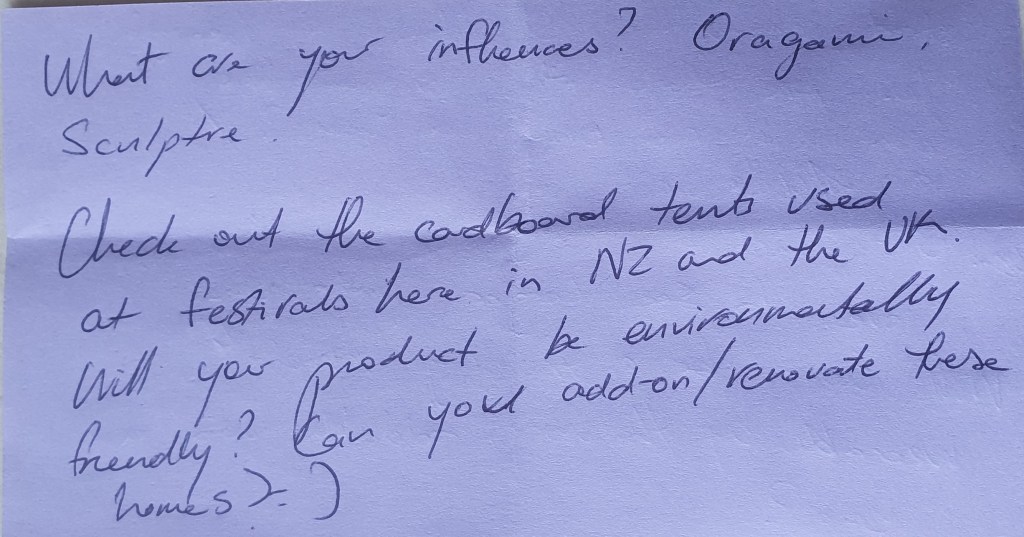 What are your influences? Oragami,
Sculptre.
Check out the cardboard tents used
at festivals here in NZ and the UK.
Will your product be environmentally
friendly? Can you add-on/renovate these
homes? :)